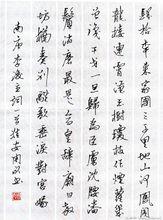 四十年来家国三千里地山河鳳阁
龍樓連霄漢玉樹瓊枝作烟蘿幾
曾識干戈一旦歸為臣虜沈腰潘
鬢消磨最是倉皇辭廟日教
坊猶奏別離歌垂淚對宮娥
南唐李後主詞一首